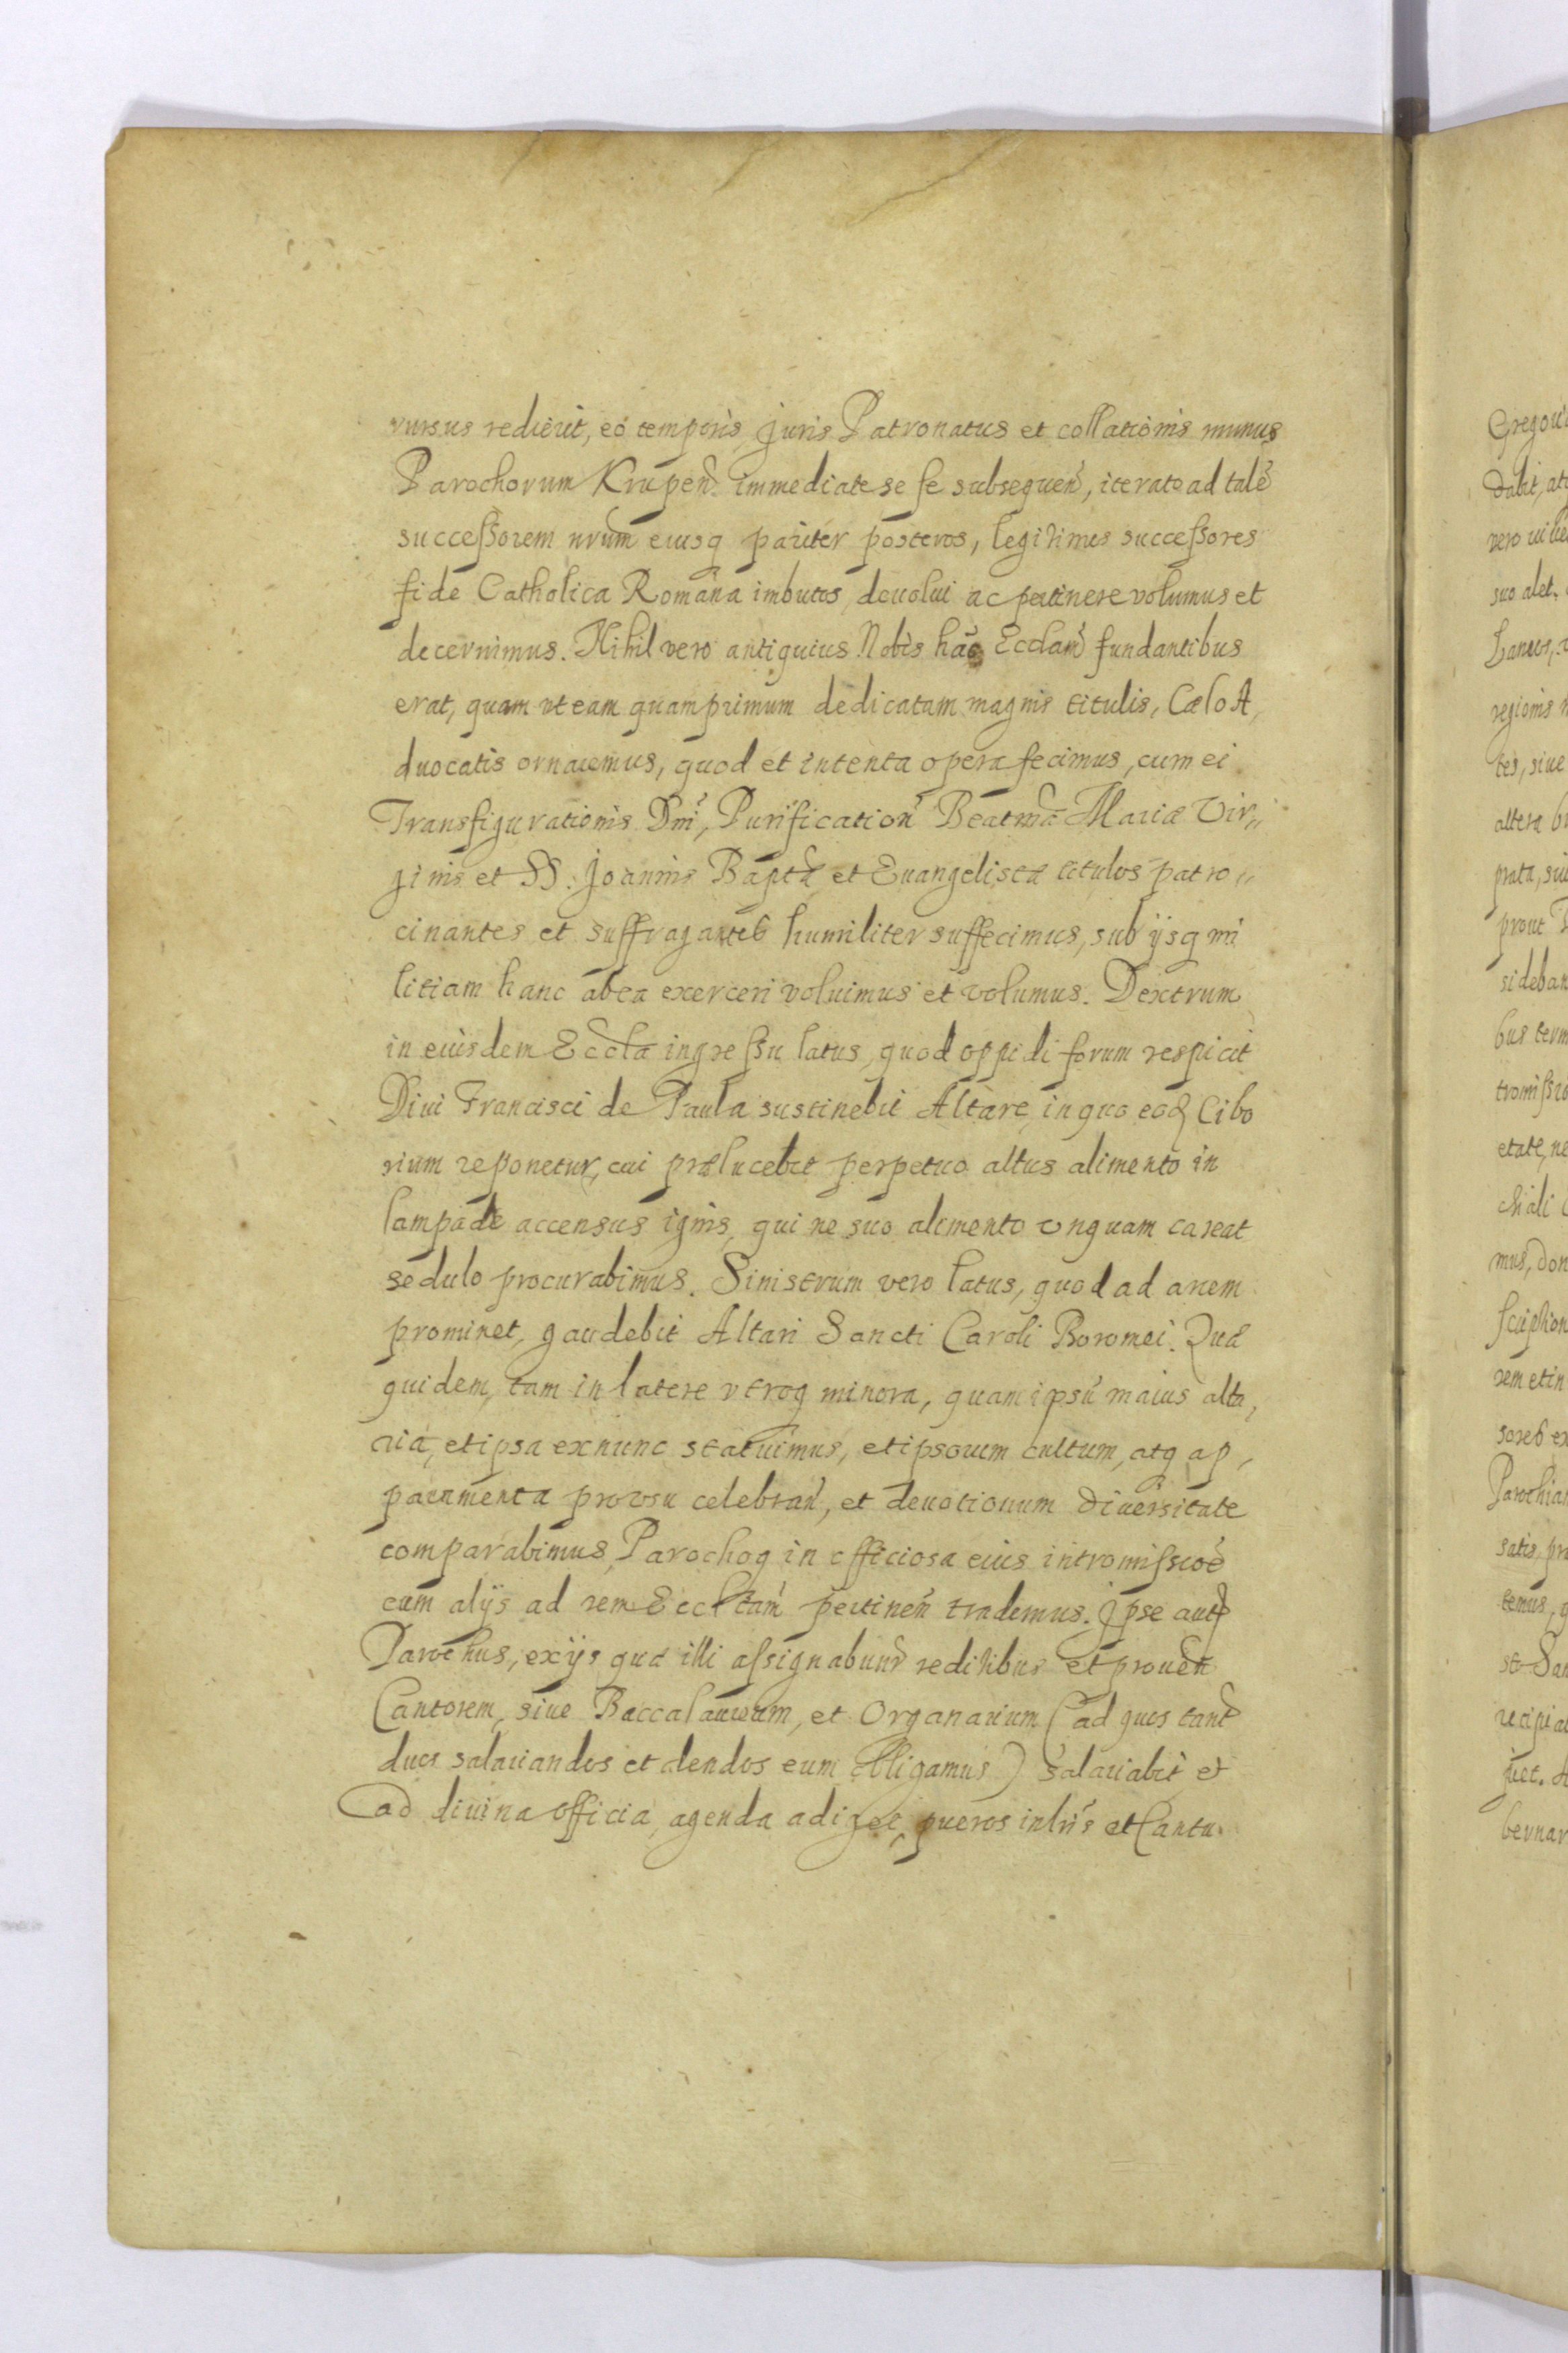 rursus redierit, eo temporis Juris Patronatus et collationis munus
Parochorum Krupeñ immediate se se subsequeñ, iterato ad talẽ
successorem nrũm eiusq pariter posteros, legitimos successores
fide Catholica Romana imbutos, deuolui ac pertinere volumus et
decernimus. Nihil vero antiquius Nobis hãc Ecclam̃ fundantibus
erat, quam vt eam quamprimum dedicatam magnis titulis, Cælo A,
duocatis ornaremus, quod et intenta opera fecimus, cum ei
Transfigurationis Dm̃i, Purificationĩ Beatmæ Mariæ Vir„
ginis et SS. Joannis Baptæ et Euangelistæ titulos patro„
cinantes et suffragantes humiliter suffecimus, sub ijsq mi
litiam hanc ab ea exerceri voluimus et volumus. Dextrum
in eiusdem Eccla ingressu latus, quod oppidi forum respicit
Diui Francisci de Paula sustinebit Altare, in quo eod Cibo
rium reponetur, cui prælucebit perpetuo altus alimento in
lampade accensus ignis, qui ne suo alimento vnquam careat
sedulo procurabimus. Sinistrum vero latus, quod ad arcem
prominet, gaudebit Altari Sancti Caroli Boromei. Quæ
quidem, tam in latere vtroq minora, quam ipsũ maius alta,
ria, et ipsa ex nunc statuimus, et ipsorum cultum, atq ap,
paramenta pro vsu celebrañ, et deuotionum diuersitate
comparabimus, Parochoq in officiosa eius intromissioẽ
cum alijs ad rem Eccltam̃ pertineñ trademus. Ipse autẽ
Parochus, ex ijs quæ illi assignabunr reditibus et proueñ
Cantorem, siue Baccalaureum, et Organarium (ad quos tanq̃
duos salariandos et alendos eum obligamus) salariabit et
ad diuina officia agenda adiget, pueros in lrĩs et Cantu